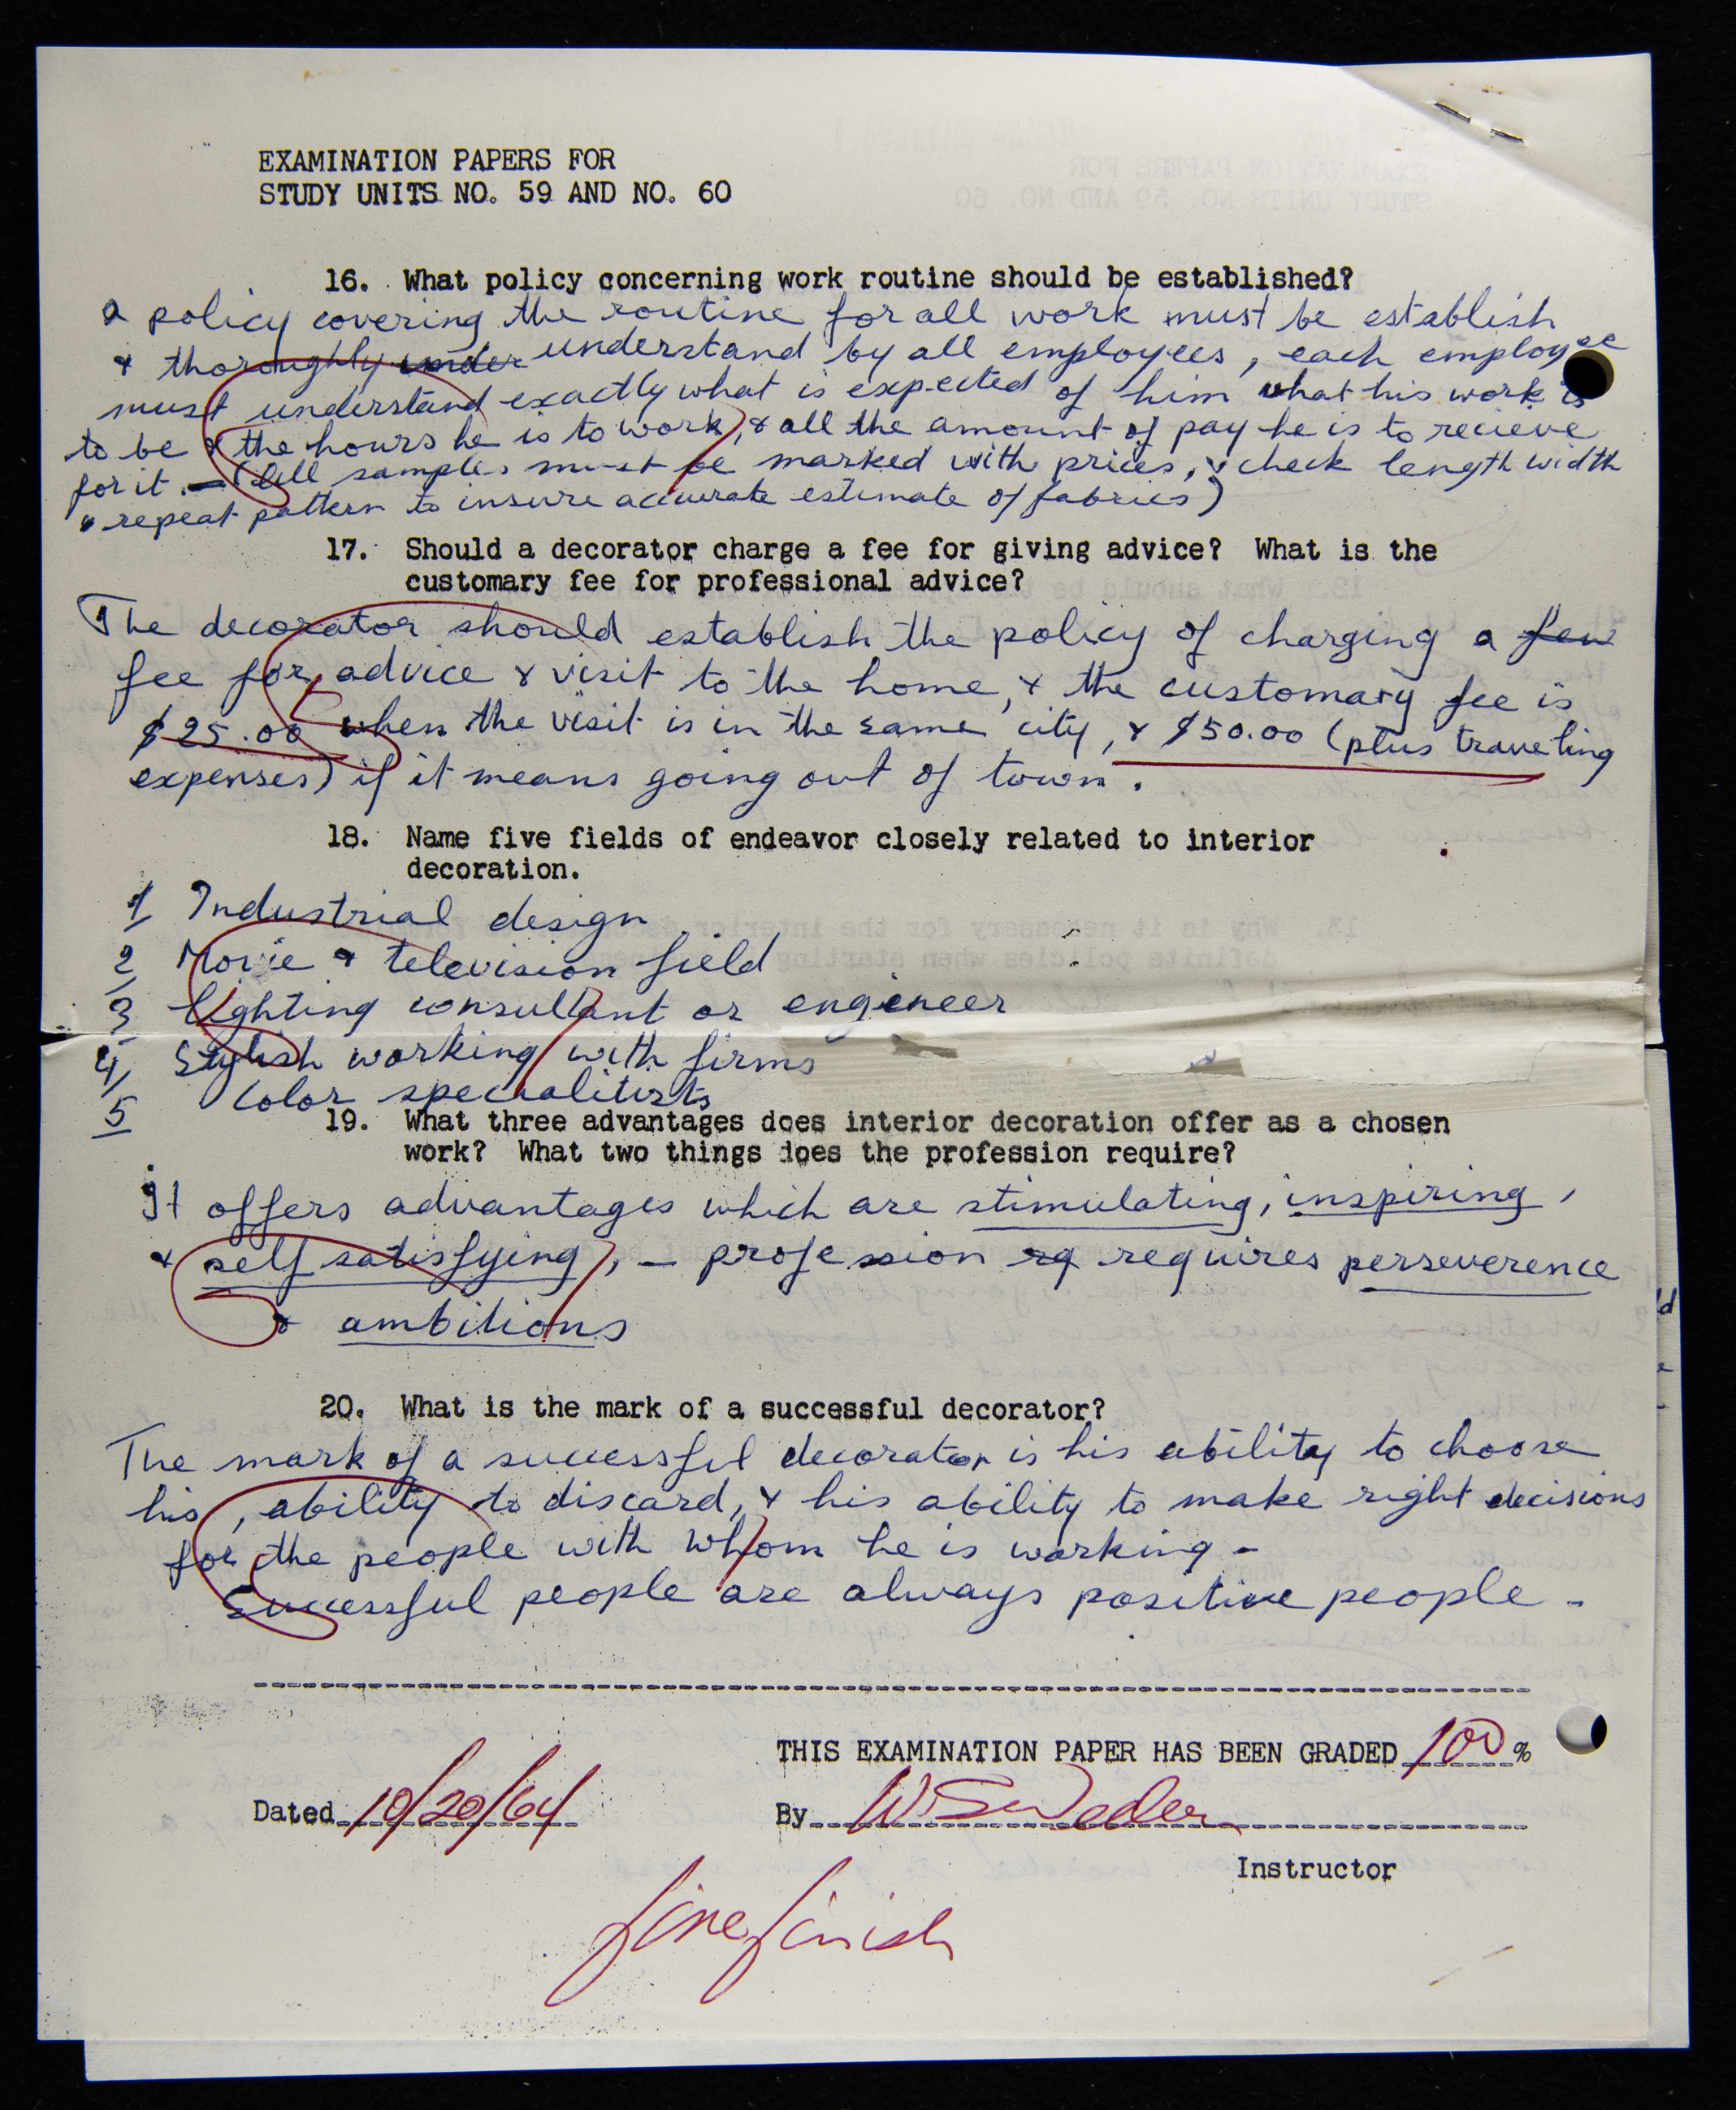 EXAMINATION PAPERS FOR
STUDY UNITS NO. 59 AND NO. 60
16. What policy concerning work routine should be established?
a policy covering the routine for all work must be establish
& thoroughly under understand by all employees, each employee
must understand exactly what is expected of him what his work is
to be & the hours he is to work, & all the amount of pay he is to recieve
for it. — (All samples must be marked with prices, & check length width
& repeat pattern to insure accurate estimate of fabrics)
17. Should a decorator charge a fee for giving advice? What is the
customary fee for professional advice?
The decorator should establish the policy of charging a few
fee for advice & visit to the home, & the customary fee is
$25.00 when the visit is in the same city, & $50.00 (plus traveling
expenses) if it means going out of town.
18. Name five fields of endeavor closely related to interior
decoration.
1 Industrial design
2 Movie & television field
3 lighting consultant or engineer
4 Stylish working with firms
5 Color specialitists
19. What three advantages does interior decoration offer as a chosen
work? What two things does the profession require?
It offers advantages which are stimulating, inspiring,
& self satisfying, — profession rq requires perseverence
& ambitions
20. What is the mark of a successful decorator?
The mark of a successful decorator is his ability to choose
his, ability to discard, & his ability to make right decisions
for the people with whom he is working -
Successful people are always positive people -
THIS EXAMINATION PAPER HAS BEEN GRADED 100 %
Dated 10/20/64 By W. S. Weder
Instructor
fine finish